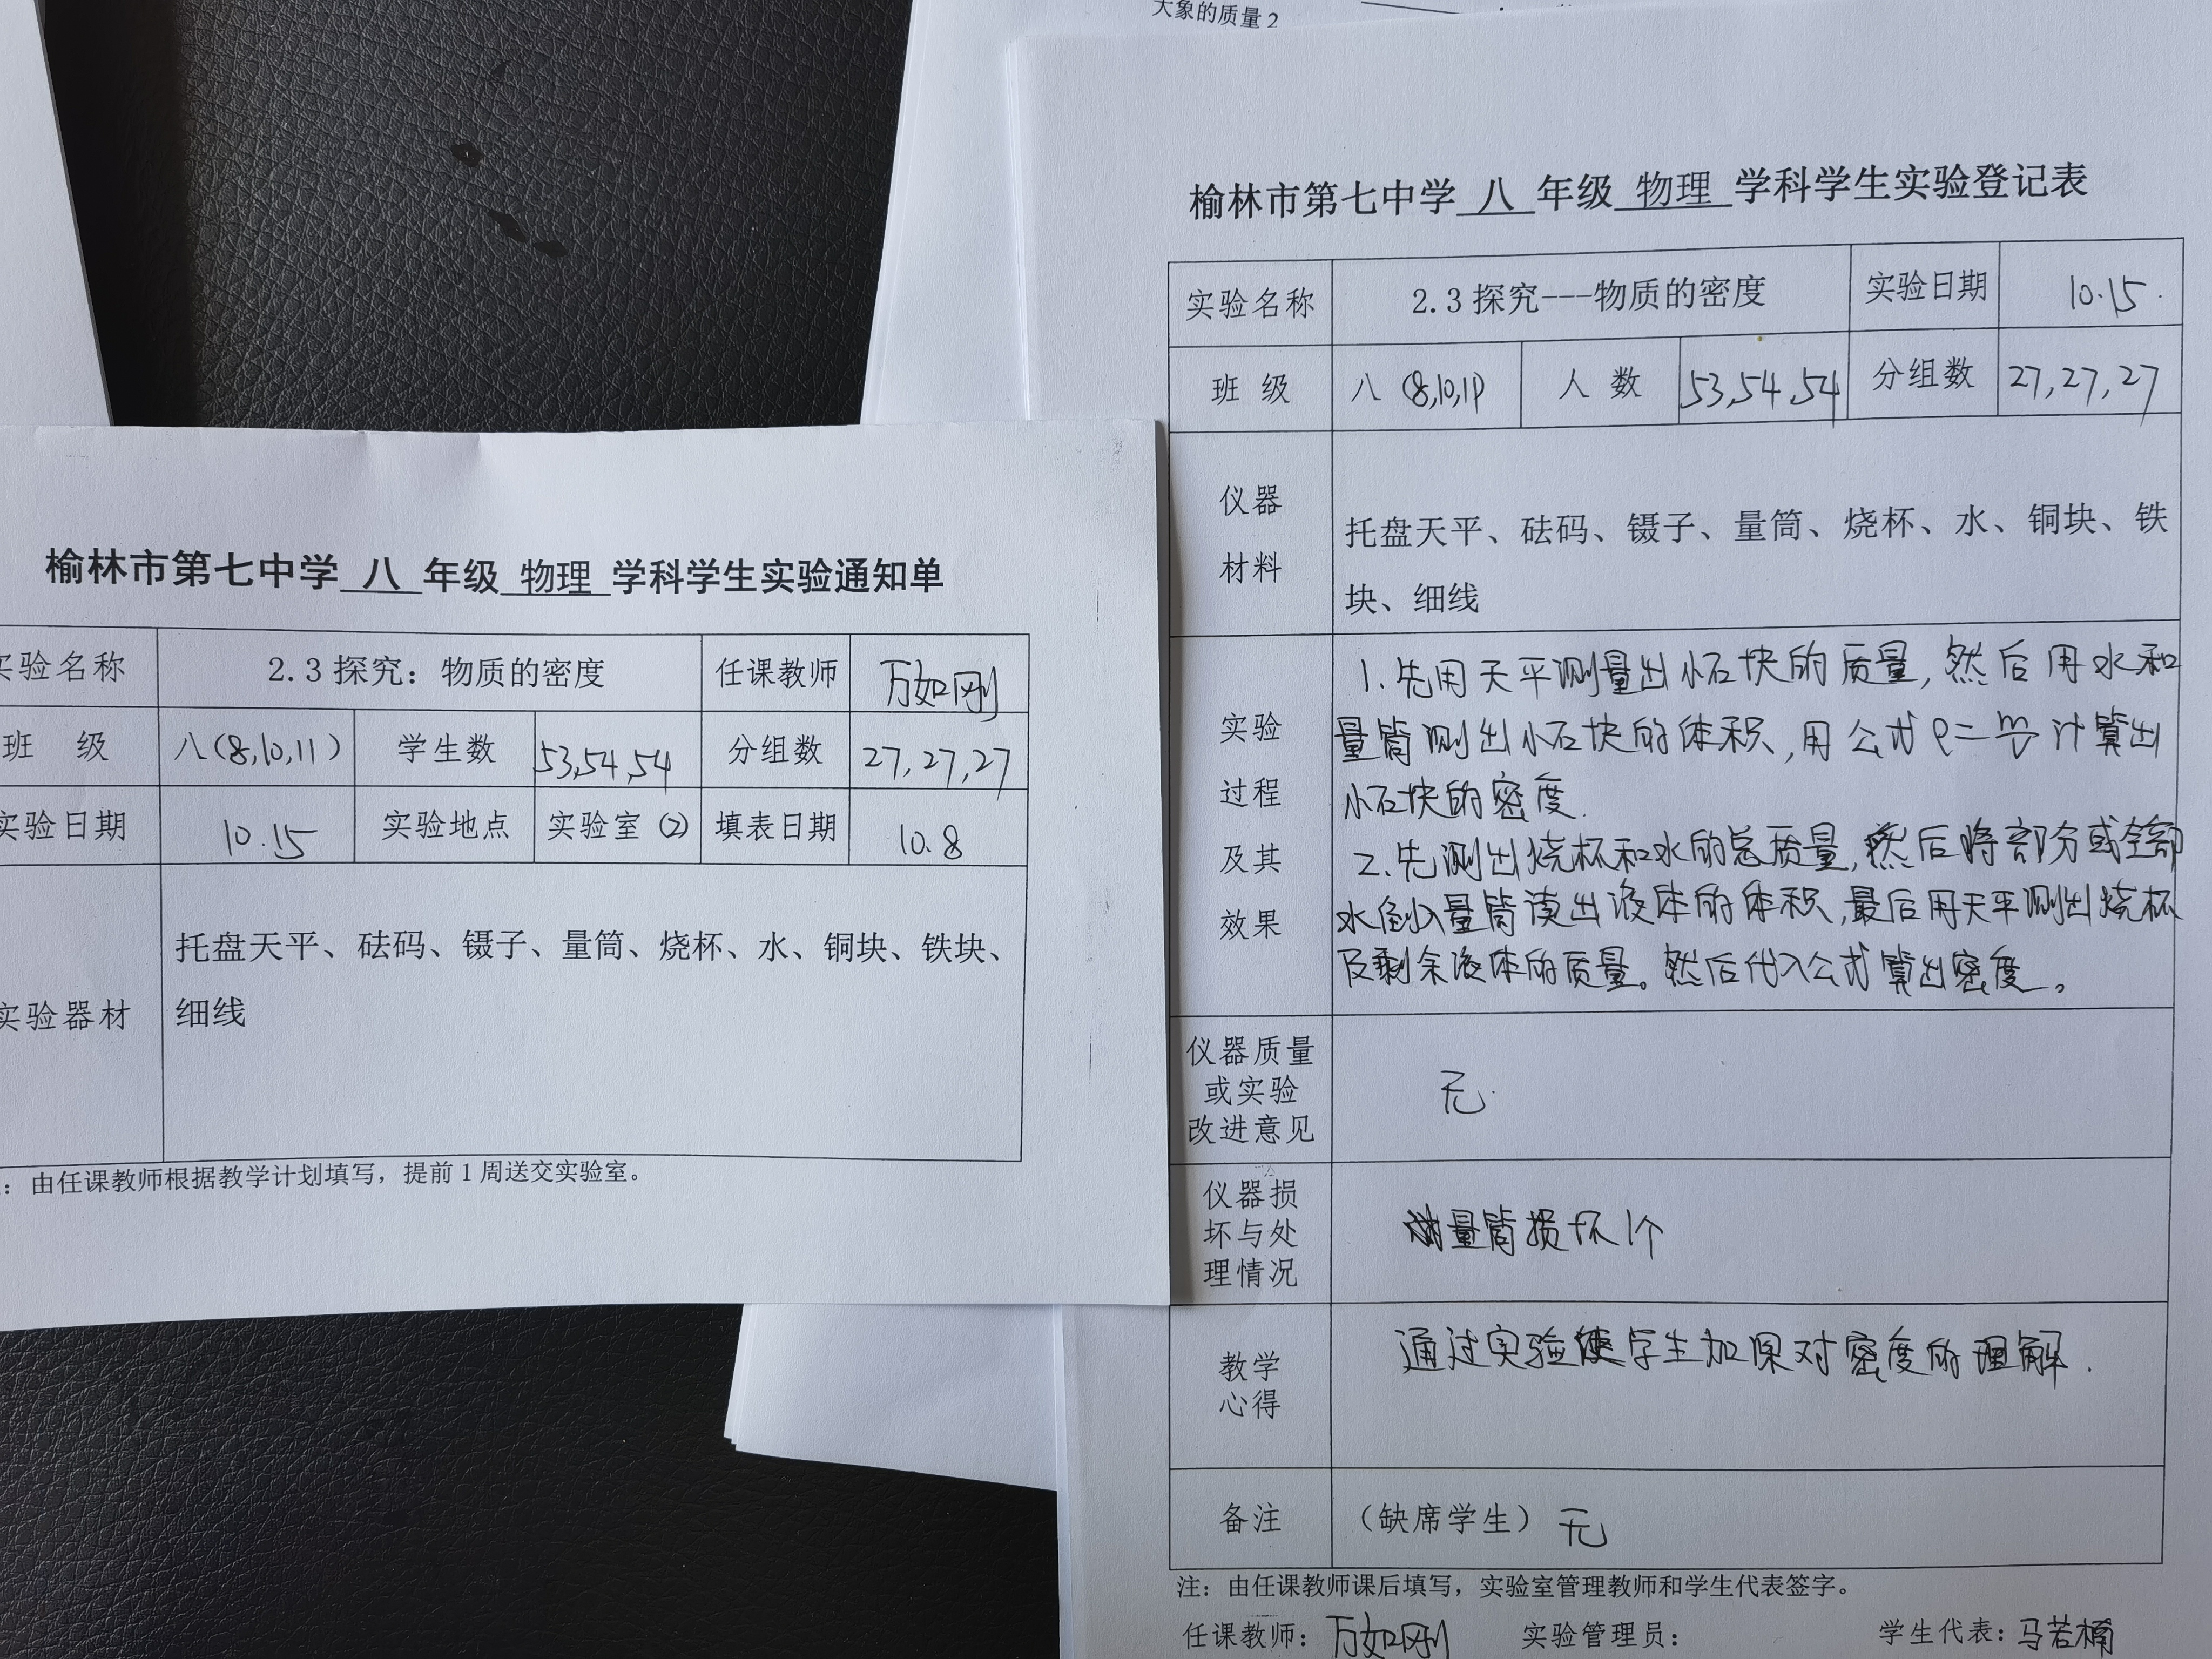 大象的质量2
榆林市第七中学 八 年级 物理 学科学生实验通知单
实验名称 2.3探究：物质的密度 任课教师 万如刚
班 级 八(8,10,11) 学生数 53,54,54 分组数 27,27,27
实验日期 10.15 实验地点 实验室(2) 填表日期 10.8
实验器材 托盘天平、砝码、镊子、量筒、烧杯、水、铜块、铁块、
细线
：由任课教师根据教学计划填写，提前1周送交实验室。
榆林市第七中学 八 年级 物理 学科学生实验登记表
实验名称 2.3探究---物质的密度 实验日期 10.15.
班 级 八(8,10,11) 人 数 53,54,54 分组数 27,27,27
仪器
材料
托盘天平、砝码、镊子、量筒、烧杯、水、铜块、铁
块、细线
实验
过程
及其
效果
1.先用天平测量出小石块的质量,然后用水和
量筒测出小石块的体积,用公式ρ=m/v计算出
小石块的密度.
2.先测出烧杯和水的总质量,然后将部分或全部
水倒入量筒读出液体的体积,最后用天平测出烧杯
及剩余液体的质量。然后代入公式算出密度。
仪器质量
或实验
改进意见
无.
仪器损
坏与处
理情况
量筒损坏1个
教学
心得
通过实验使学生加深对密度的理解.
备注 （缺席学生）无
注：由任课教师课后填写，实验室管理教师和学生代表签字。
任课教师：万如刚 实验管理员： 学生代表：马若楠